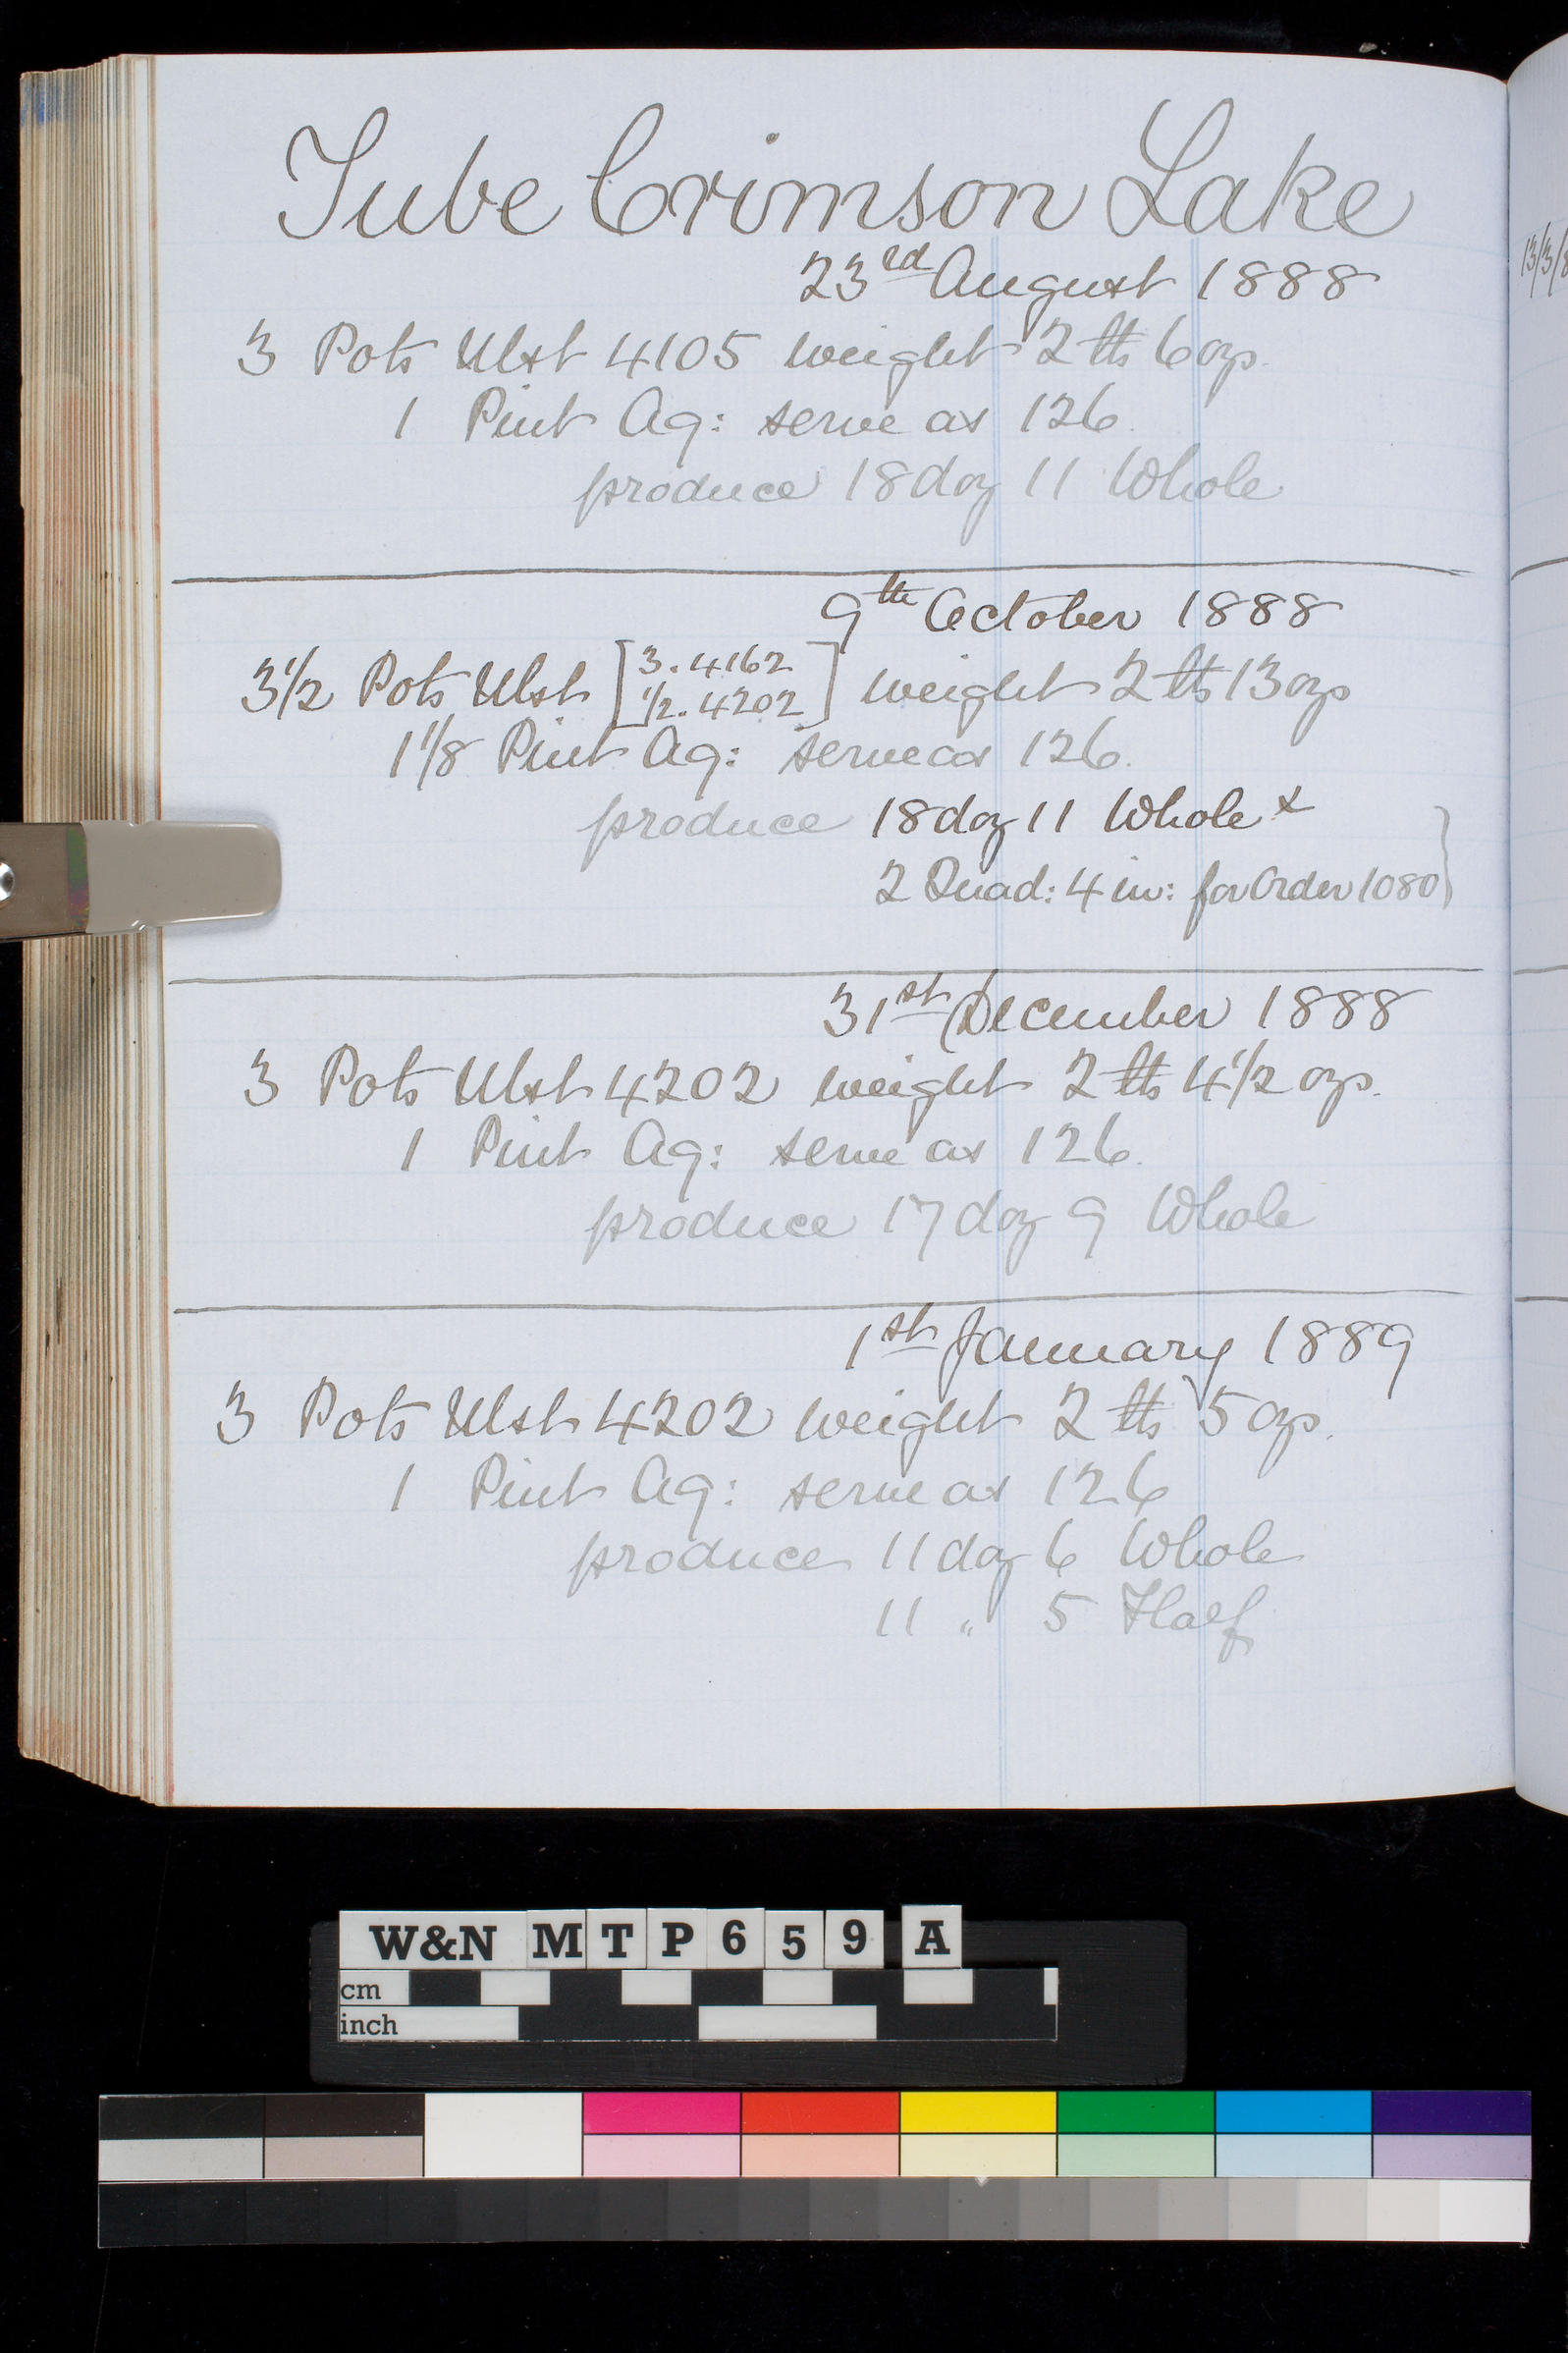 Tube Crimson Lake
23rd August 1888
3 Pots Ulst 4105 weight 2 lbs 6 ozs.
1 Pint Aq: serve as 126.
produce 18 doz 11 Whole
9th October 1888
3 1/2 Pots Ulst [3. 4162
1/2. 4202] weight 2 lbs 13 ozs
1 1/8 Pint Aq: serve as 126.
produce 18 doz 11 Whole &
2 Quad: 4 in: for Order 1080}
31st December 1888
3 Pots Ulst 4202 weight 2 lbs 4 1/2 ozs.
1 Pint Aq: serve as 126.
produce 17 doz 9 Whole
1st January 1889
3 Pots Ulst 4202 weight 2 lbs 5 ozs.
1 Pint Aq: serve as 126
produce 11 doz 6 Whole
11 " 5 Half
W&N MTP659 A
cm
inch